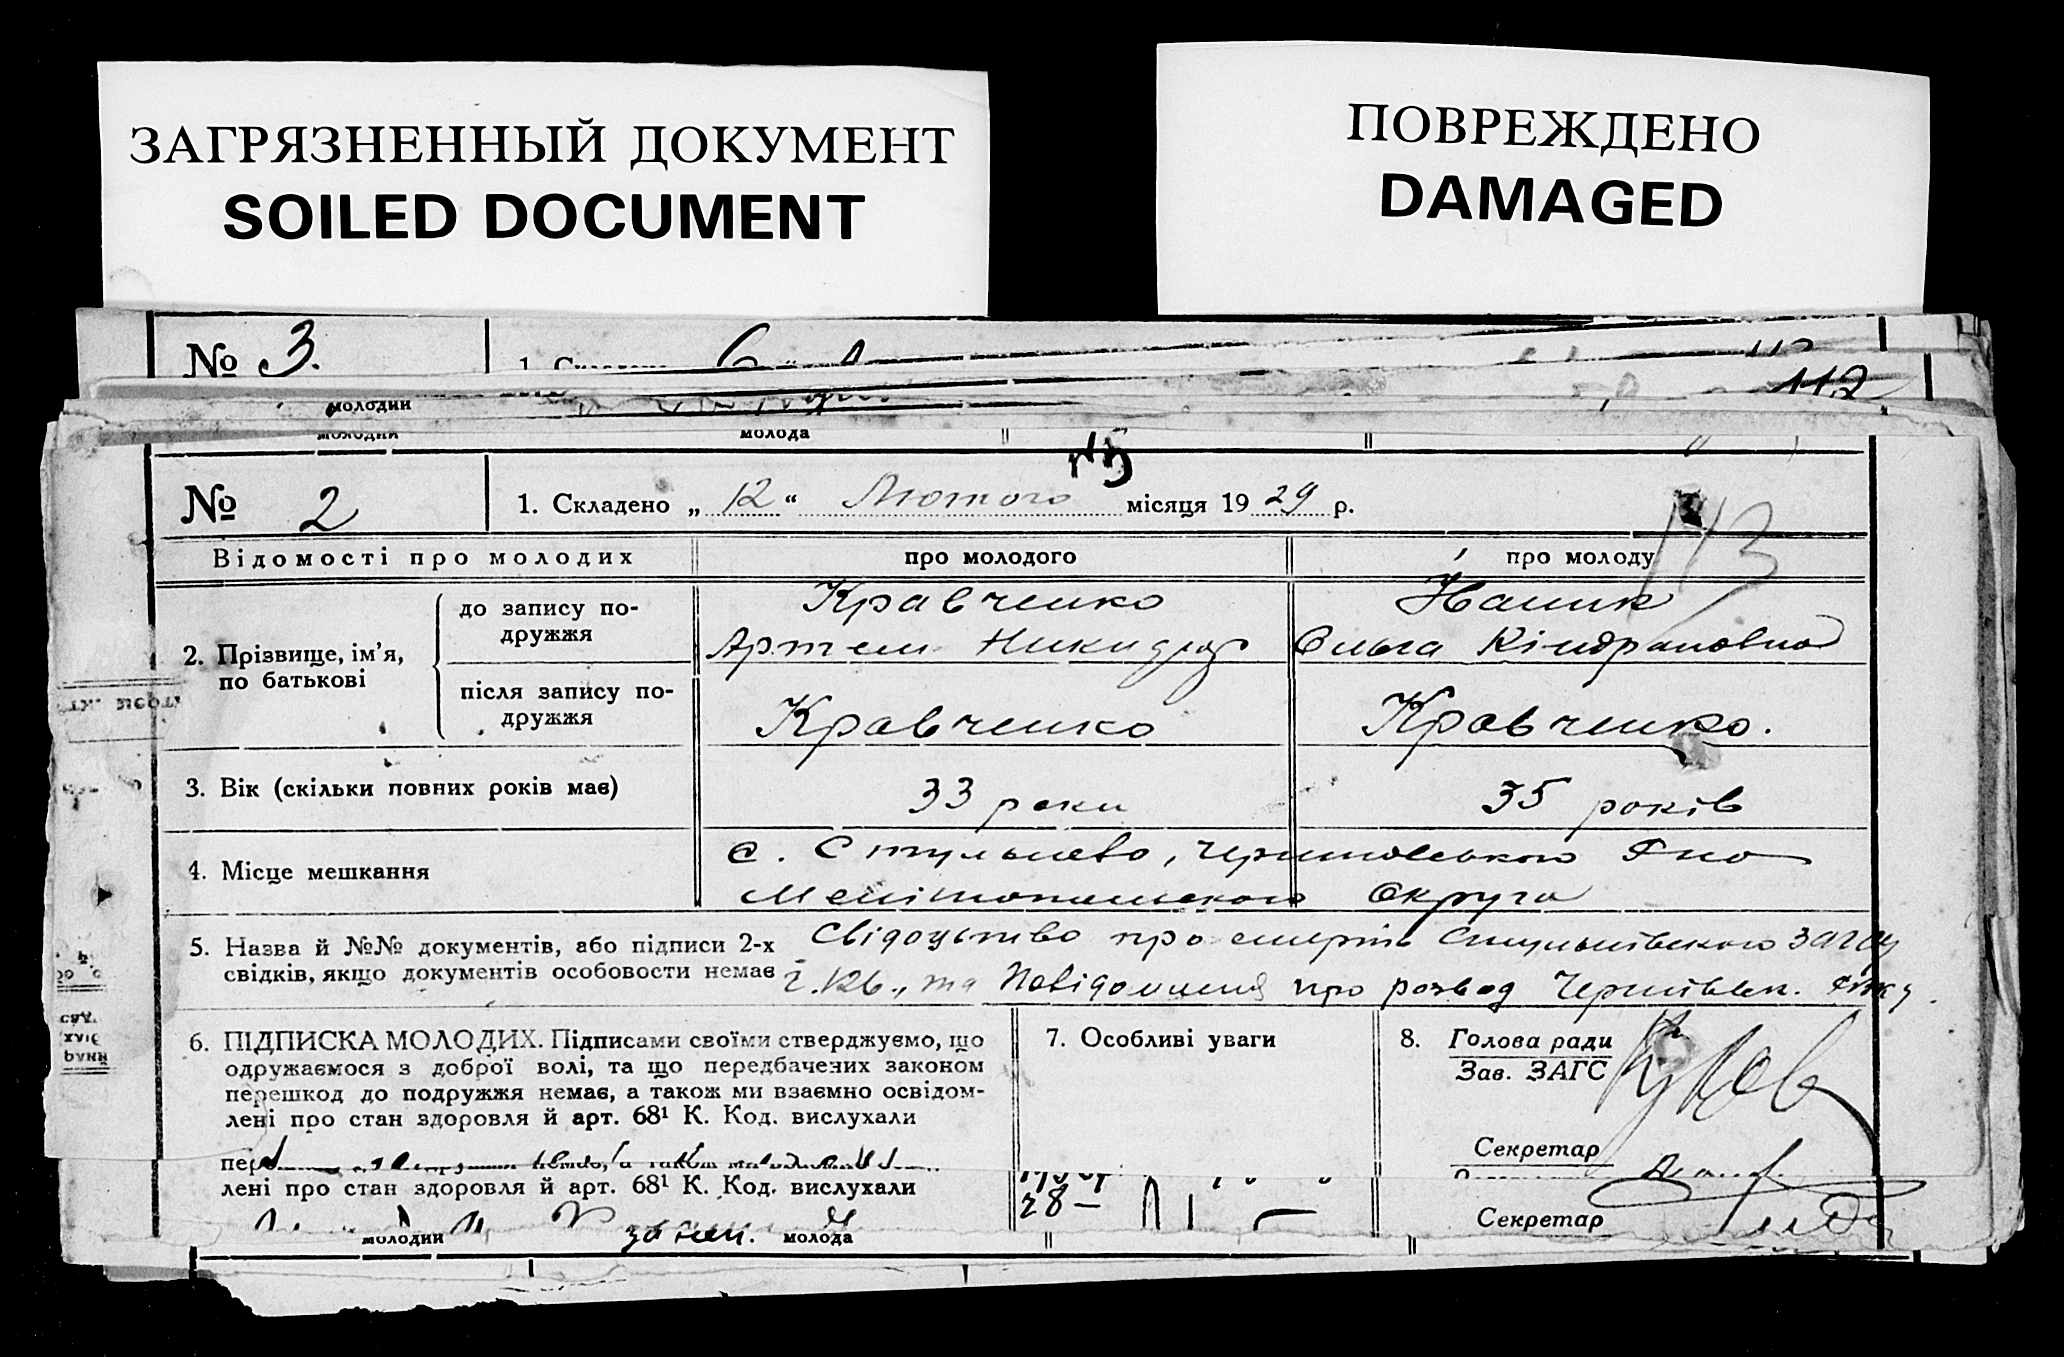 ЗАГРЯЗНЕННЫЙ ДОКУМЕНТ
SOILED DOCUMENT
ПОВРЕЖДЕНО
DAMAGED
№ 3.
112
молодий
молодий молода
№ 2 1. Складено „ 12 “ Лютого місяця 19 29 р.
113
Відомості про молодих про молодого про молоду
2. Прізвище, ім'я, по батькові
до запису по-
дружжя
Кравченко
Артем
Ольга
після запису по-
дружжя
Кравченко Кравченко.
3. Вік (скільки повних років має) 33 роки 35 років
4. Місце мешкання
с. Стульнево, Чернігівського
Мелітопольського Округа
5. Назва й №№ документів, або підписи 2-х
свідків, якщо документів особовости немає
Свідоцтво про смерть Стульнівського
та Повідомлення про розвод
6. ПІДПИСКА МОЛОДИХ. Підписами своїми стверджуємо, що
одружаємося з доброї волі, та що передбачених законом
перешкод до подружжя немає, а також ми взаємно освідом-
лені про стан здоровля й арт. 68¹ К. Код. вислухали
7. Особливі уваги
8. Голова ради
Зав. ЗАГС
Секретар
лені про стан здоровля й арт. 68¹ К. Код. вислухали
28 —
Секретар
молодий молода